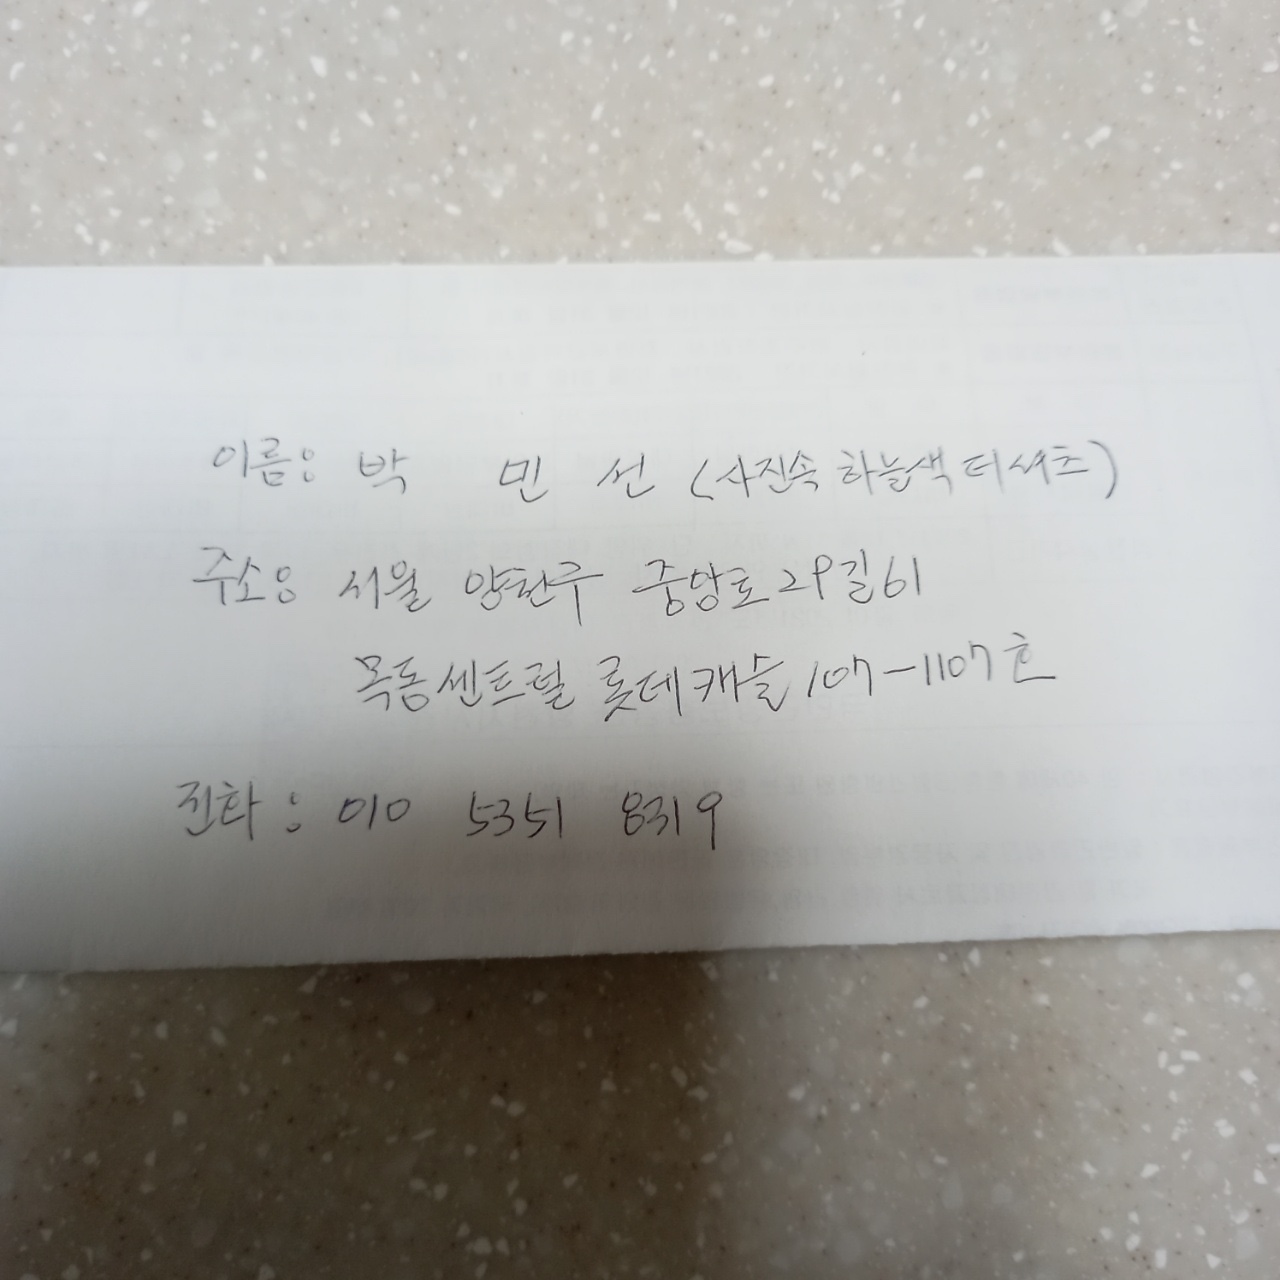 이름: 박 민 선 (사진속 하늘색 티셔츠)
주소: 서울 양천구 중앙로29길61
목동센트럴 롯데캐슬 107-1107호
전화: 010 5351 8319